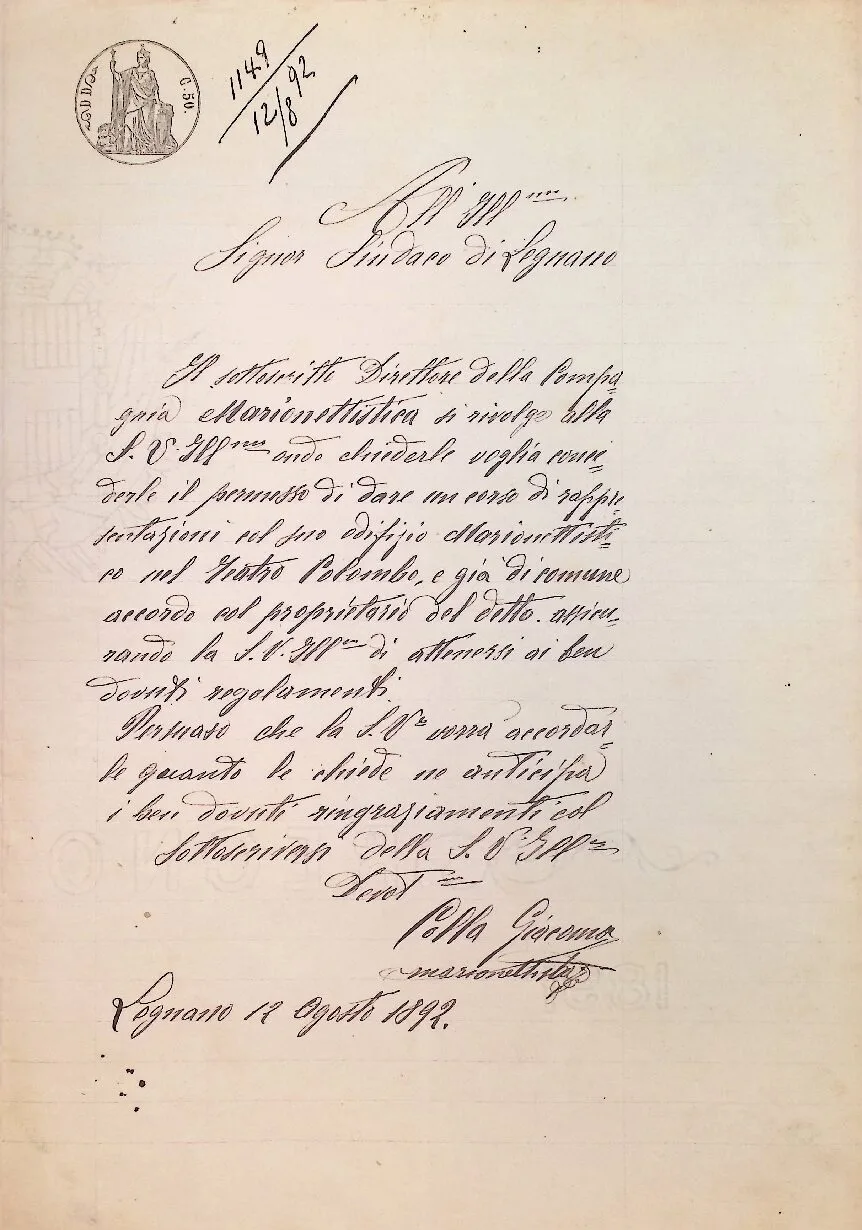 C. 50.
1149
12/8 92
All' Ill.mo
Signor Sindaco di Legnano
Il sottoscritto Direttore della Compa-
gnia Marionettistica si rivolge alla
S. V. Ill.ma onde chiederle voglia conce-
derle il permesso di dare un corso di rappre-
sentazioni col suo edifizio Marionettisti-
co nel Teatro Colombo, e già di comune
accordo col proprietario del detto. assicu-
rando la S. V. Ill.ma di attenersi ai ben
dovuti regolamenti.
Persuaso che la S. V.a vorrà accordar-
le quanto le chiede ne anticipa
i ben dovuti ringraziamenti col
sottoscriversi della S. V. Ill.ma
Devot.mo
Colla Giacomo
marionettista
Legnano 12 Agosto 1892.